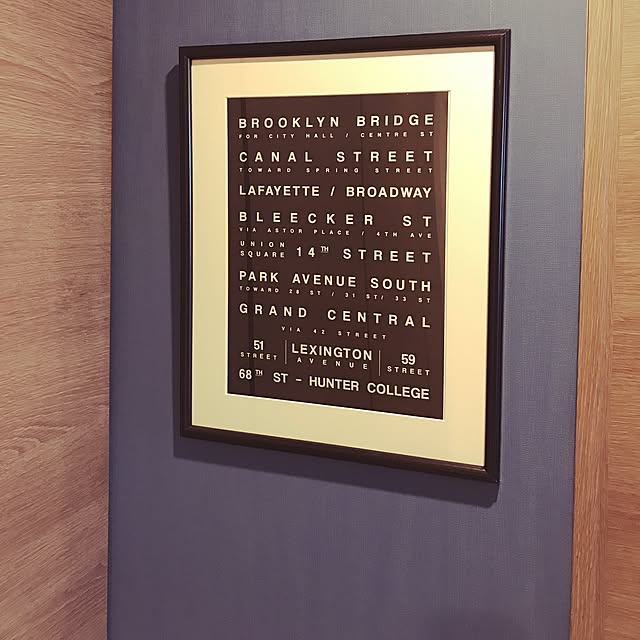 BROOKLYN BRIDGE
FOR CITY HALL / CENTRE ST
CANAL STREET
TOWARD SPRING STREET
LAFAYETTE / BROADWAY
BLEECKER ST
VIA ASTOR PLACE / 4TH AVE
UNION SQUARE 14TH STREET
PARK AVENUE SOUTH
TOWARD 28 ST / 31 ST/ 33 ST
GRAND CENTRAL
VIA 42 STREET
51 STREET
LEXINGTON AVENUE
59 STREET
68TH ST - HUNTER COLLEGE